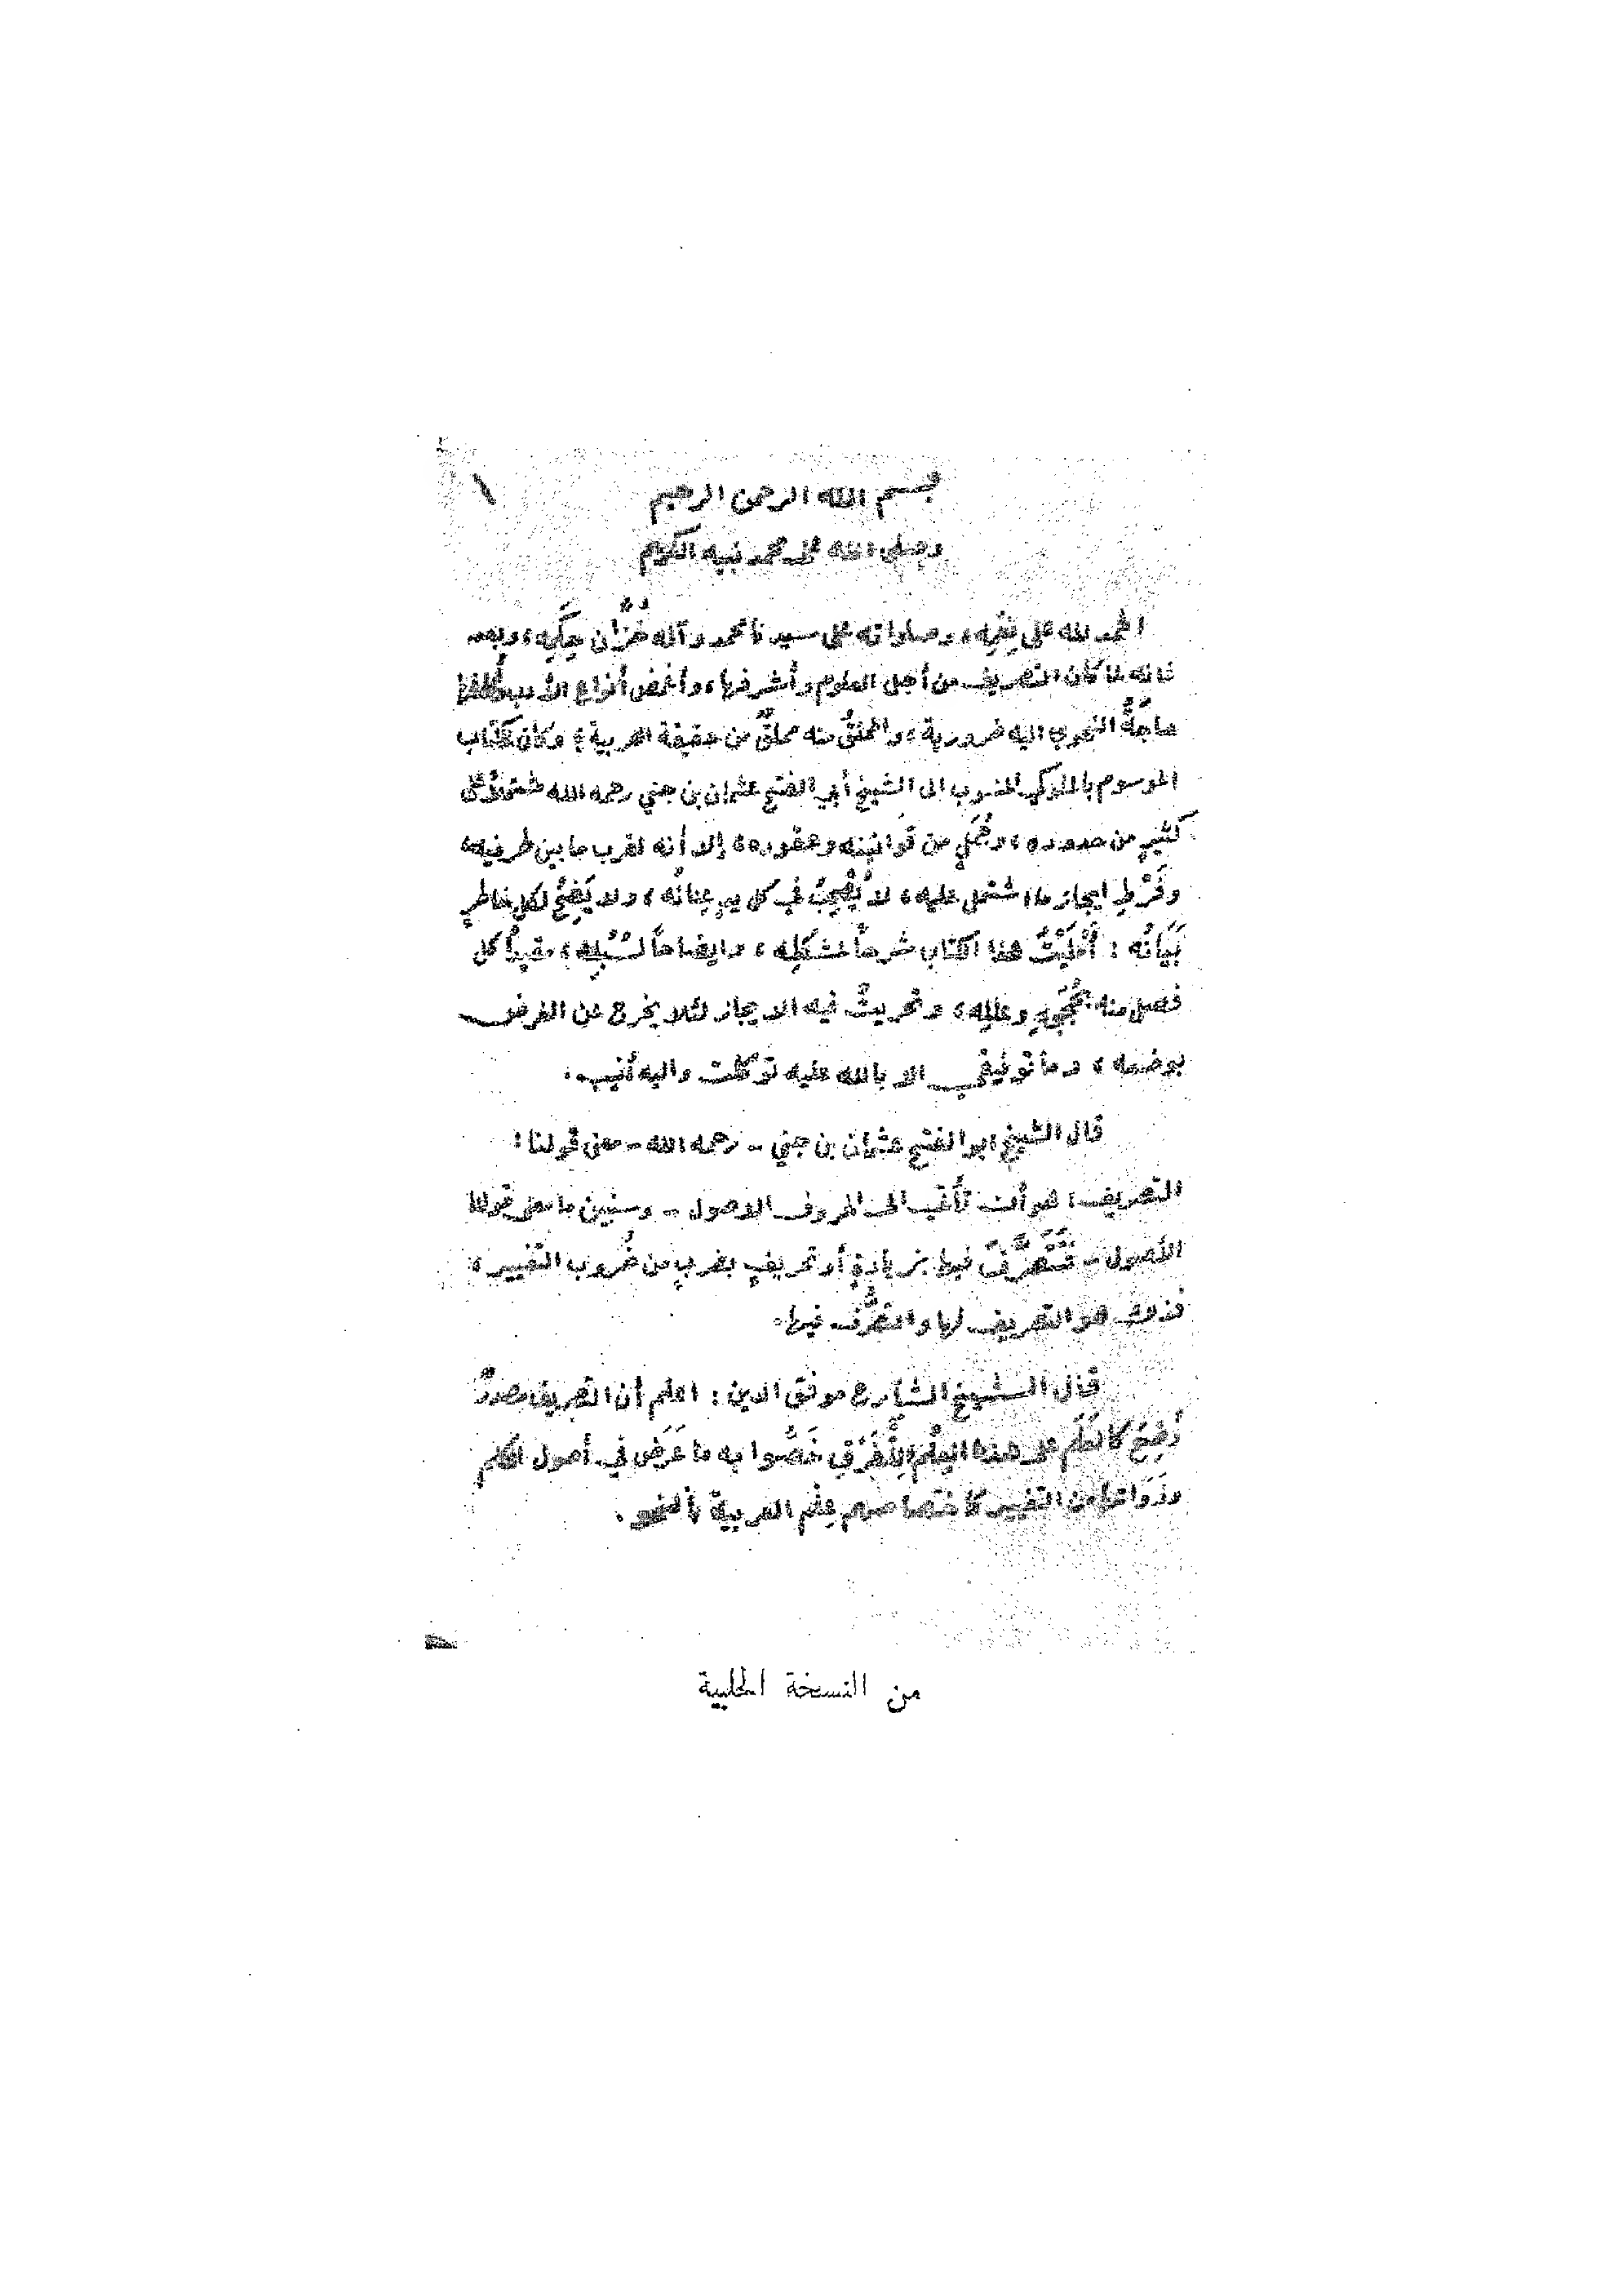 ١
بسم الله الرحمن الرحيم
وصلى الله على محمد نبيه الكريم
الحمد لله على نِعَمِه، وصلواته على سيدنا محمد وآله خُزَّان حِكَمِه، وبعد
فانه لما كان التصريف من أجل العلوم وأشرفها، وأغمض أنواع الأدب وألطفها
حاجَةُ النحوي اليه ضرورية، والمخلُّ منه مخلٌّ من حقيقة العربية؛ وكان كتاب
الموسوم بالملوكي المنسوب الى الشيخ أبي الفتح عثمان بن جني رحمه الله مشتملاً على
كثيرٍ من حدوده، وجُمَلٍ من قوانينه وعقوده، إلا أنه لقرب ما بين طرفيه،
وفَرْطِ ايجاز ما اشتمل عليه، لا يُصْحِبُ في كل يدٍ عِنانُه، ولا يَضِحُ لكل خاطرٍ
بَيَانُه: أمْلَيْتُ هذا الكتاب شرحاً لمشكلِه، وايضاحاً لسُبُلِه، مقيداً كل
فصل منه بحُجَجِه وعلله، وتحريتُ فيه الايجاز لئلا يخرج عن الغرض
بوضعه، وما توفيقي الا بالله عليه توكلت واليه أنيب.
قال الشيخ ابو الفتح عثمان بن جني - رحمه الله - معنى قولنا:
التصريف، هو أن تأتي الى الحروف الاصول - وسنبين ما معنى قولنا
الأصول - فتَتَصَرَّفَ فيها بزيادةٍ أو تحريفٍ بضربٍ من ضُروب التغيير،
فذلك هو التصريف لها والتصَرُّف فيها.
قال الشيخ الشارح موفق الدين: اعلم أن التصريف مصدرٌ
وُضِعَ كالعَلَم على هذا العِلْم للفَرْقِ خَصُّوا به ما عَرَض في أصول الكلم
وذَوَاتها من التغيير كاختصاصهم عِلْم العربية بالنحو.
من النسخة الحلبية